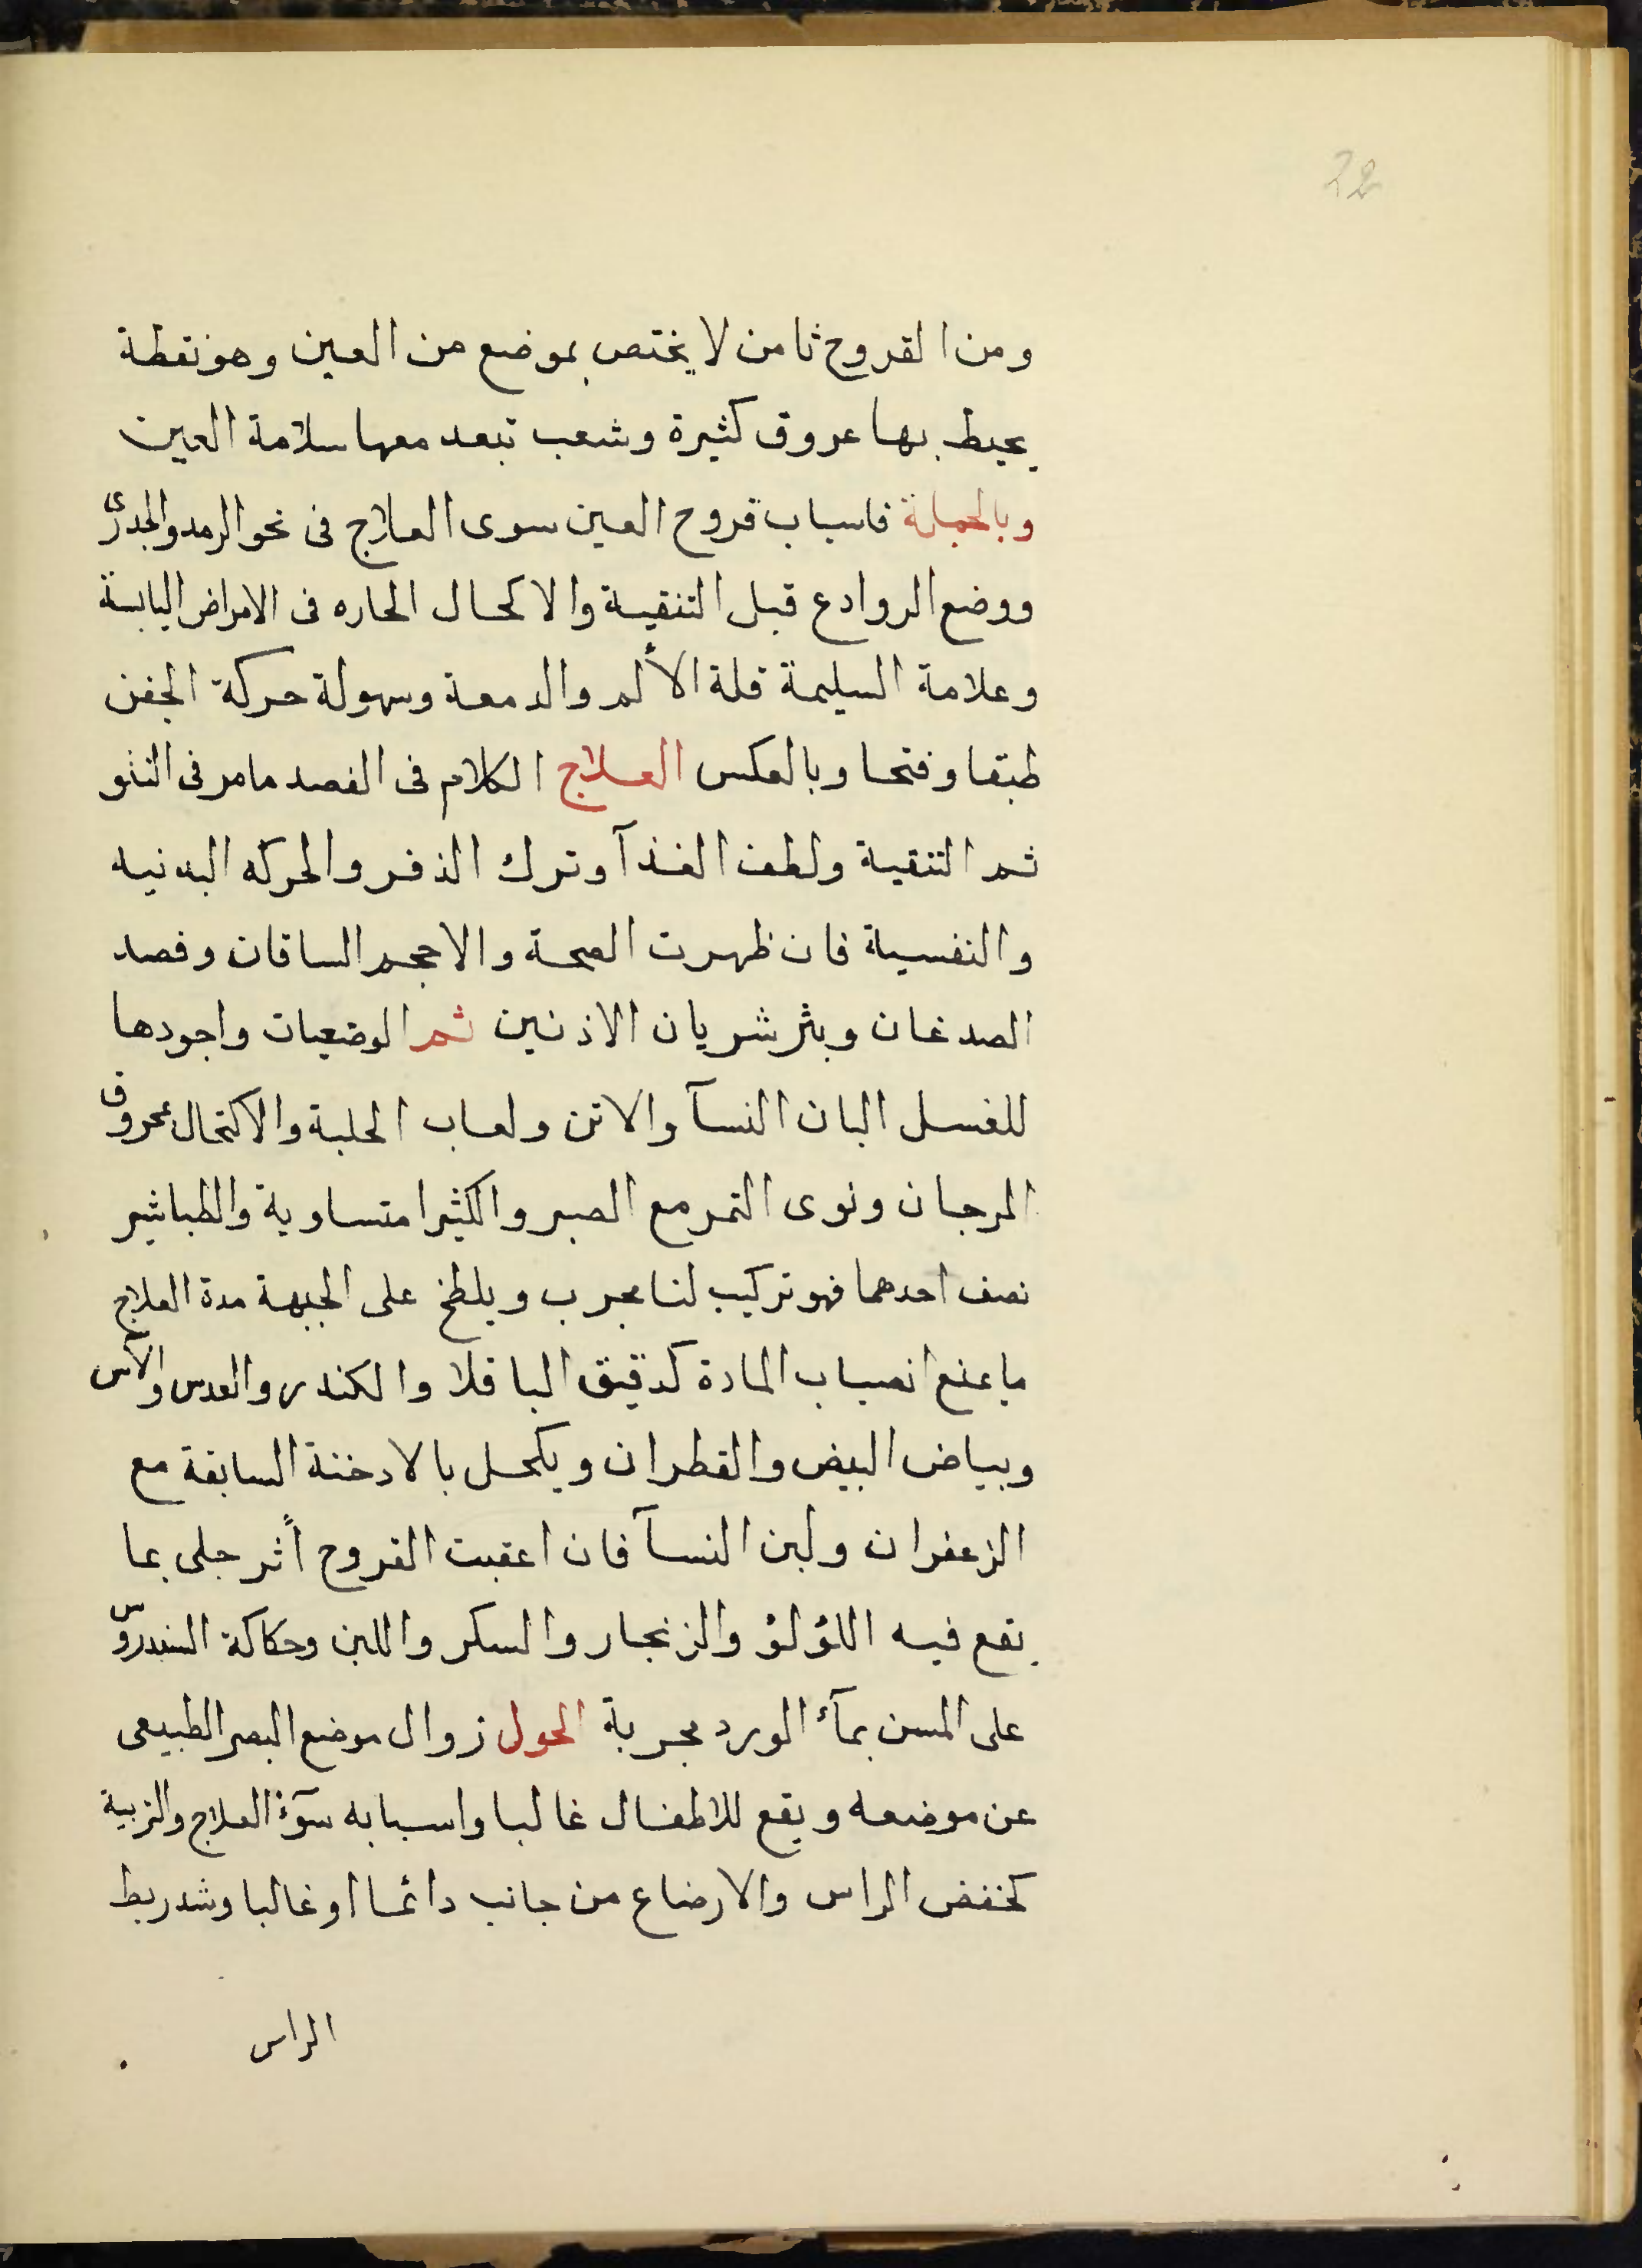 22
ومن القروح ثامن لا يختص بموضع من العين وهو نقطة
يحيط بها عروق كثيرة وشعب تبعد معها سلامة العين
وبالجملة فاسباب قروح العين سوى العلاج فى نحو الرمد والجدرى
ووضع الروادع قبل التنقية والاكحال الحاره فى الامراض اليابسة
وعلامة السليمة قلة الألم والدمعة وسهولة حركة الجفن
طبقا وفتحا وبالعكس العلاج الكلام فى الفصد مامر فى النتو
ثم التنقية ولطف الغذآ وترك الذفر والحركه البدنيه
والنفسية فان ظهرت الصحة والا حجم الساقان وفصد
الصدغان وبثر شريان الاذنين ثم الوضعيات واجودها
للغسل البان النسآ والاتن ولعاب الحلبة والاكتحال بمحروق
المرجان ونوى التمر مع الصبر والكثيرا متساوية والطباشير
نصف احدهما فهو تركيب لنا مجرب ويلطخ على الجبهة مدة العلاج
مايمنع انصباب المادة كدقيق الباقلا والكندر والعدس والآس
وبياض البيض والقطران ويكحل بالادخنة السابقة مع
الزعفران ولبن النسآ فان اعقبت القروح أثر جلى بما
يقع فيه اللؤلؤ والزنجار والسكر واللبن وحكاكة السندروس
على المسن بمآء الورد مجربة الحول زوال موضع البصر الطبيعى
عن موضعه ويقع للاطفال غالبا واسبابه سوٓء العلاج والتربية
كخفض الراس والارضاع من جانب دائما او غالبا وشد ربط
الراس